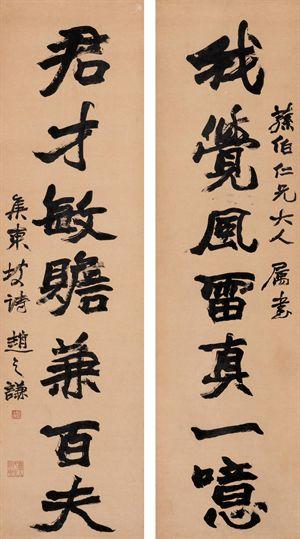 蓀伯仁兄大人 屬書
我覺風雷真一噫
君才敏贍兼百夫
集東坡詩 趙之謙